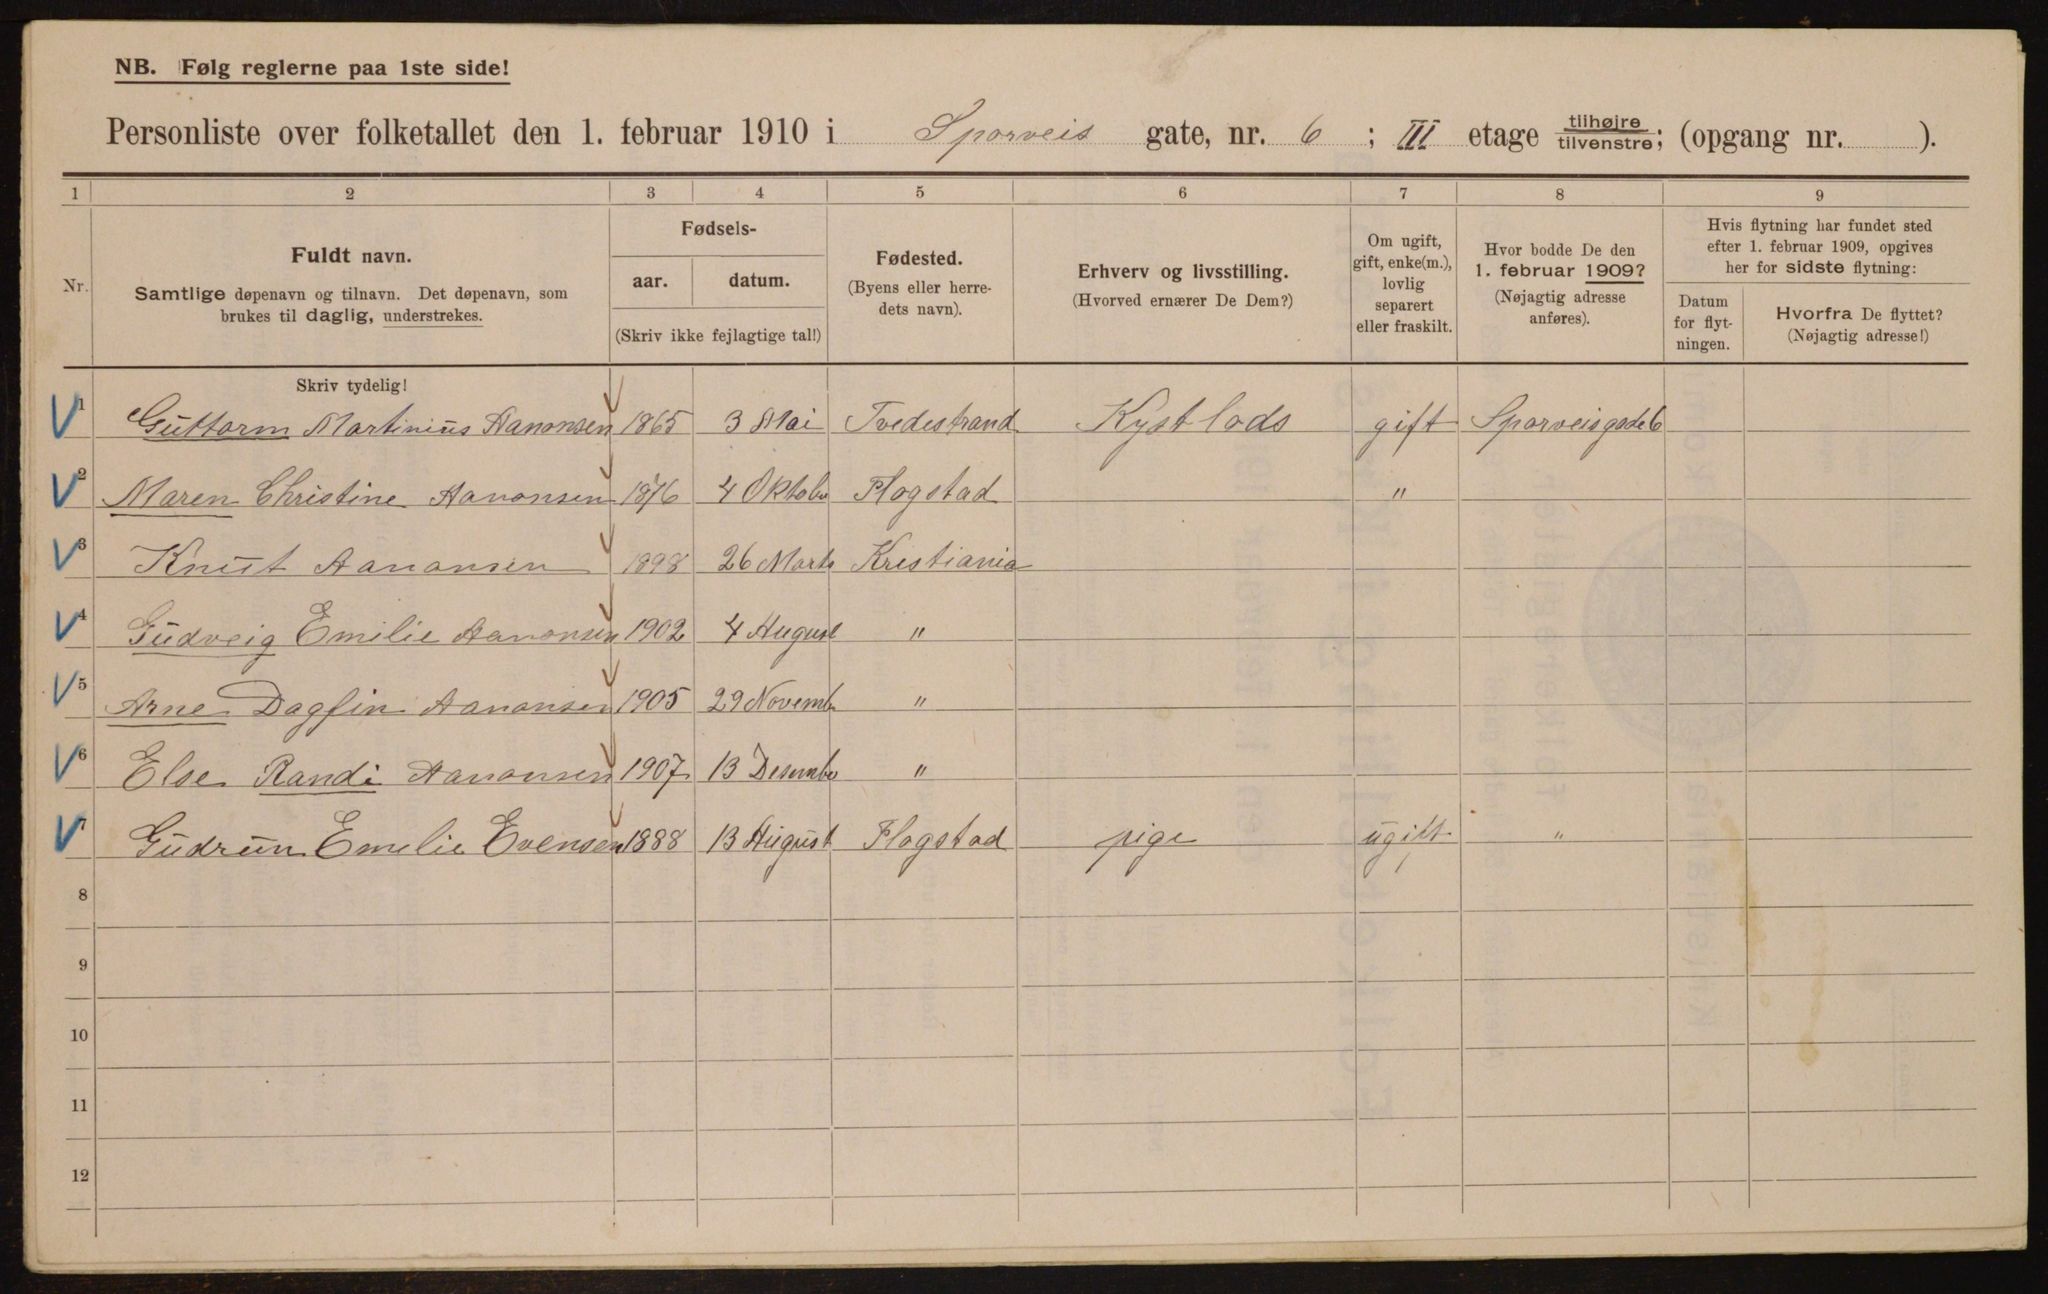 NB. Følg reglerne paa 1ste side!
Personliste over folketallet den 1. februar 1910 i Sporveis gate, nr. 6 ; III etage tilhøjre/tilvenstre; (opgang nr. ).
1 2 3 4 5 6 7 8 9
Nr.
Fuldt navn.
Samtlige døpenavn og tilnavn. Det døpenavn, som
brukes til daglig, understrekes.
Skriv tydelig!
Fødsels-
aar. datum.
(Skriv ikke fejlagtige tal!)
Fødested.
(Byens eller herre-
dets navn).
Erhverv og livsstilling.
(Hvorved ernærer De Dem?)
Om ugift,
gift, enke(m.),
lovlig
separert
eller fraskilt.
Hvor bodde De den
1. februar 1909?
(Nøjagtig adresse
anføres).
Hvis flytning har fundet sted
efter 1. februar 1909, opgives
her for sidste flytning:
Datum
for flyt-
ningen.
Hvorfra De flyttet?
(Nøjagtig adresse!)
1 Guttorm Martinius Aanonsen 1865 3 Mai Tvedestrand Kystlods gift Sporveisgade 6
2 Maren Christine Aanonsen 1876 4 Oktober Flogstad "
3 Knut Aanonsen 1898 26 Marts Kristiania
4 Gudveig Emilie Aanonsen 1902 4 August "
5 Arne Dagfin Aanonsen 1905 29 Novemb "
6 Else Randi Aanonsen 1907 13 Desember "
7 Gudrun Emelie Evensen 1888 13 August Flogstad pige ugift "
8
9
10
11
12